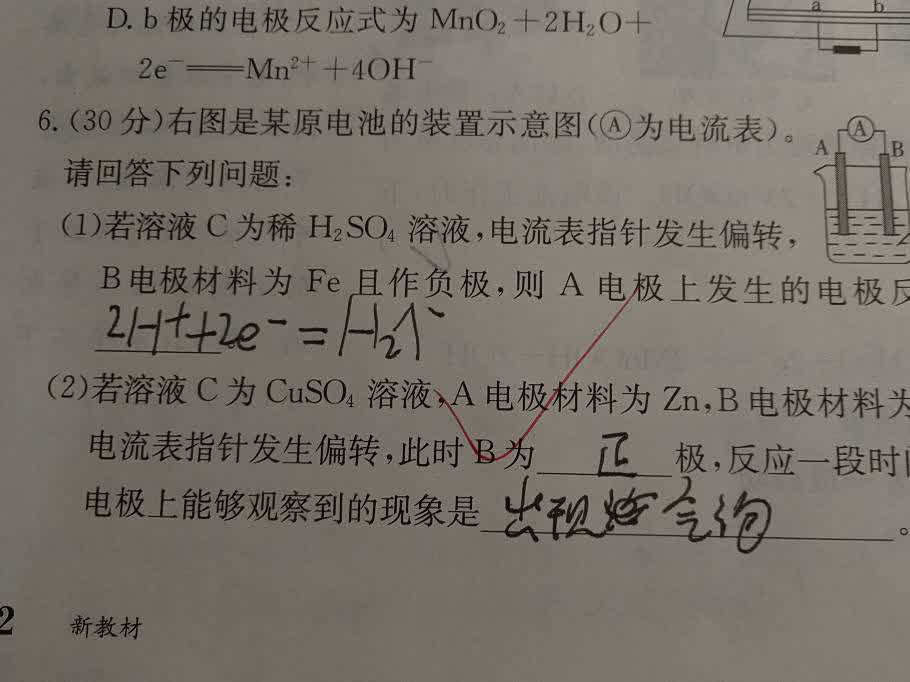 D. b 极的电极反应式为 MnO₂＋2H₂O＋
2e⁻══Mn²⁺＋4OH⁻
a b
6. (30 分)右图是某原电池的装置示意图(Ⓐ为电流表)。
A Ⓐ B
请回答下列问题：
(1)若溶液 C 为稀 H₂SO₄ 溶液，电流表指针发生偏转，
B 电极材料为 Fe 且作负极，则 A 电极上发生的电极反
2H⁺+2e⁻=H₂↑
(2)若溶液 C 为 CuSO₄ 溶液，A 电极材料为 Zn，B 电极材料为
电流表指针发生偏转，此时 B 为 正 极，反应一段时间
电极上能够观察到的现象是 出现 。
2 新教材